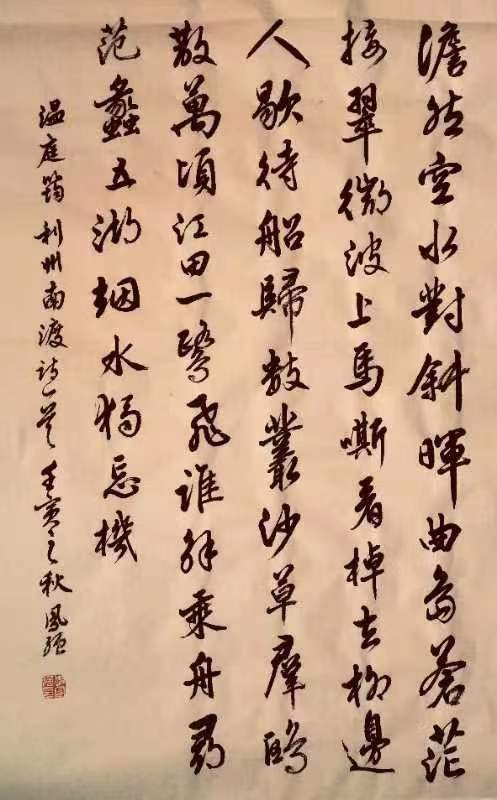 澹然空水對斜暉曲島蒼茫
接翠微波上馬嘶看棹去柳邊
人歇待船歸數叢沙草羣鷗
散萬頃江田一鷺飛誰解乘舟尋
范蠡五湖烟水獨忘機
温庭筠利州南渡詩一首壬寅之秋